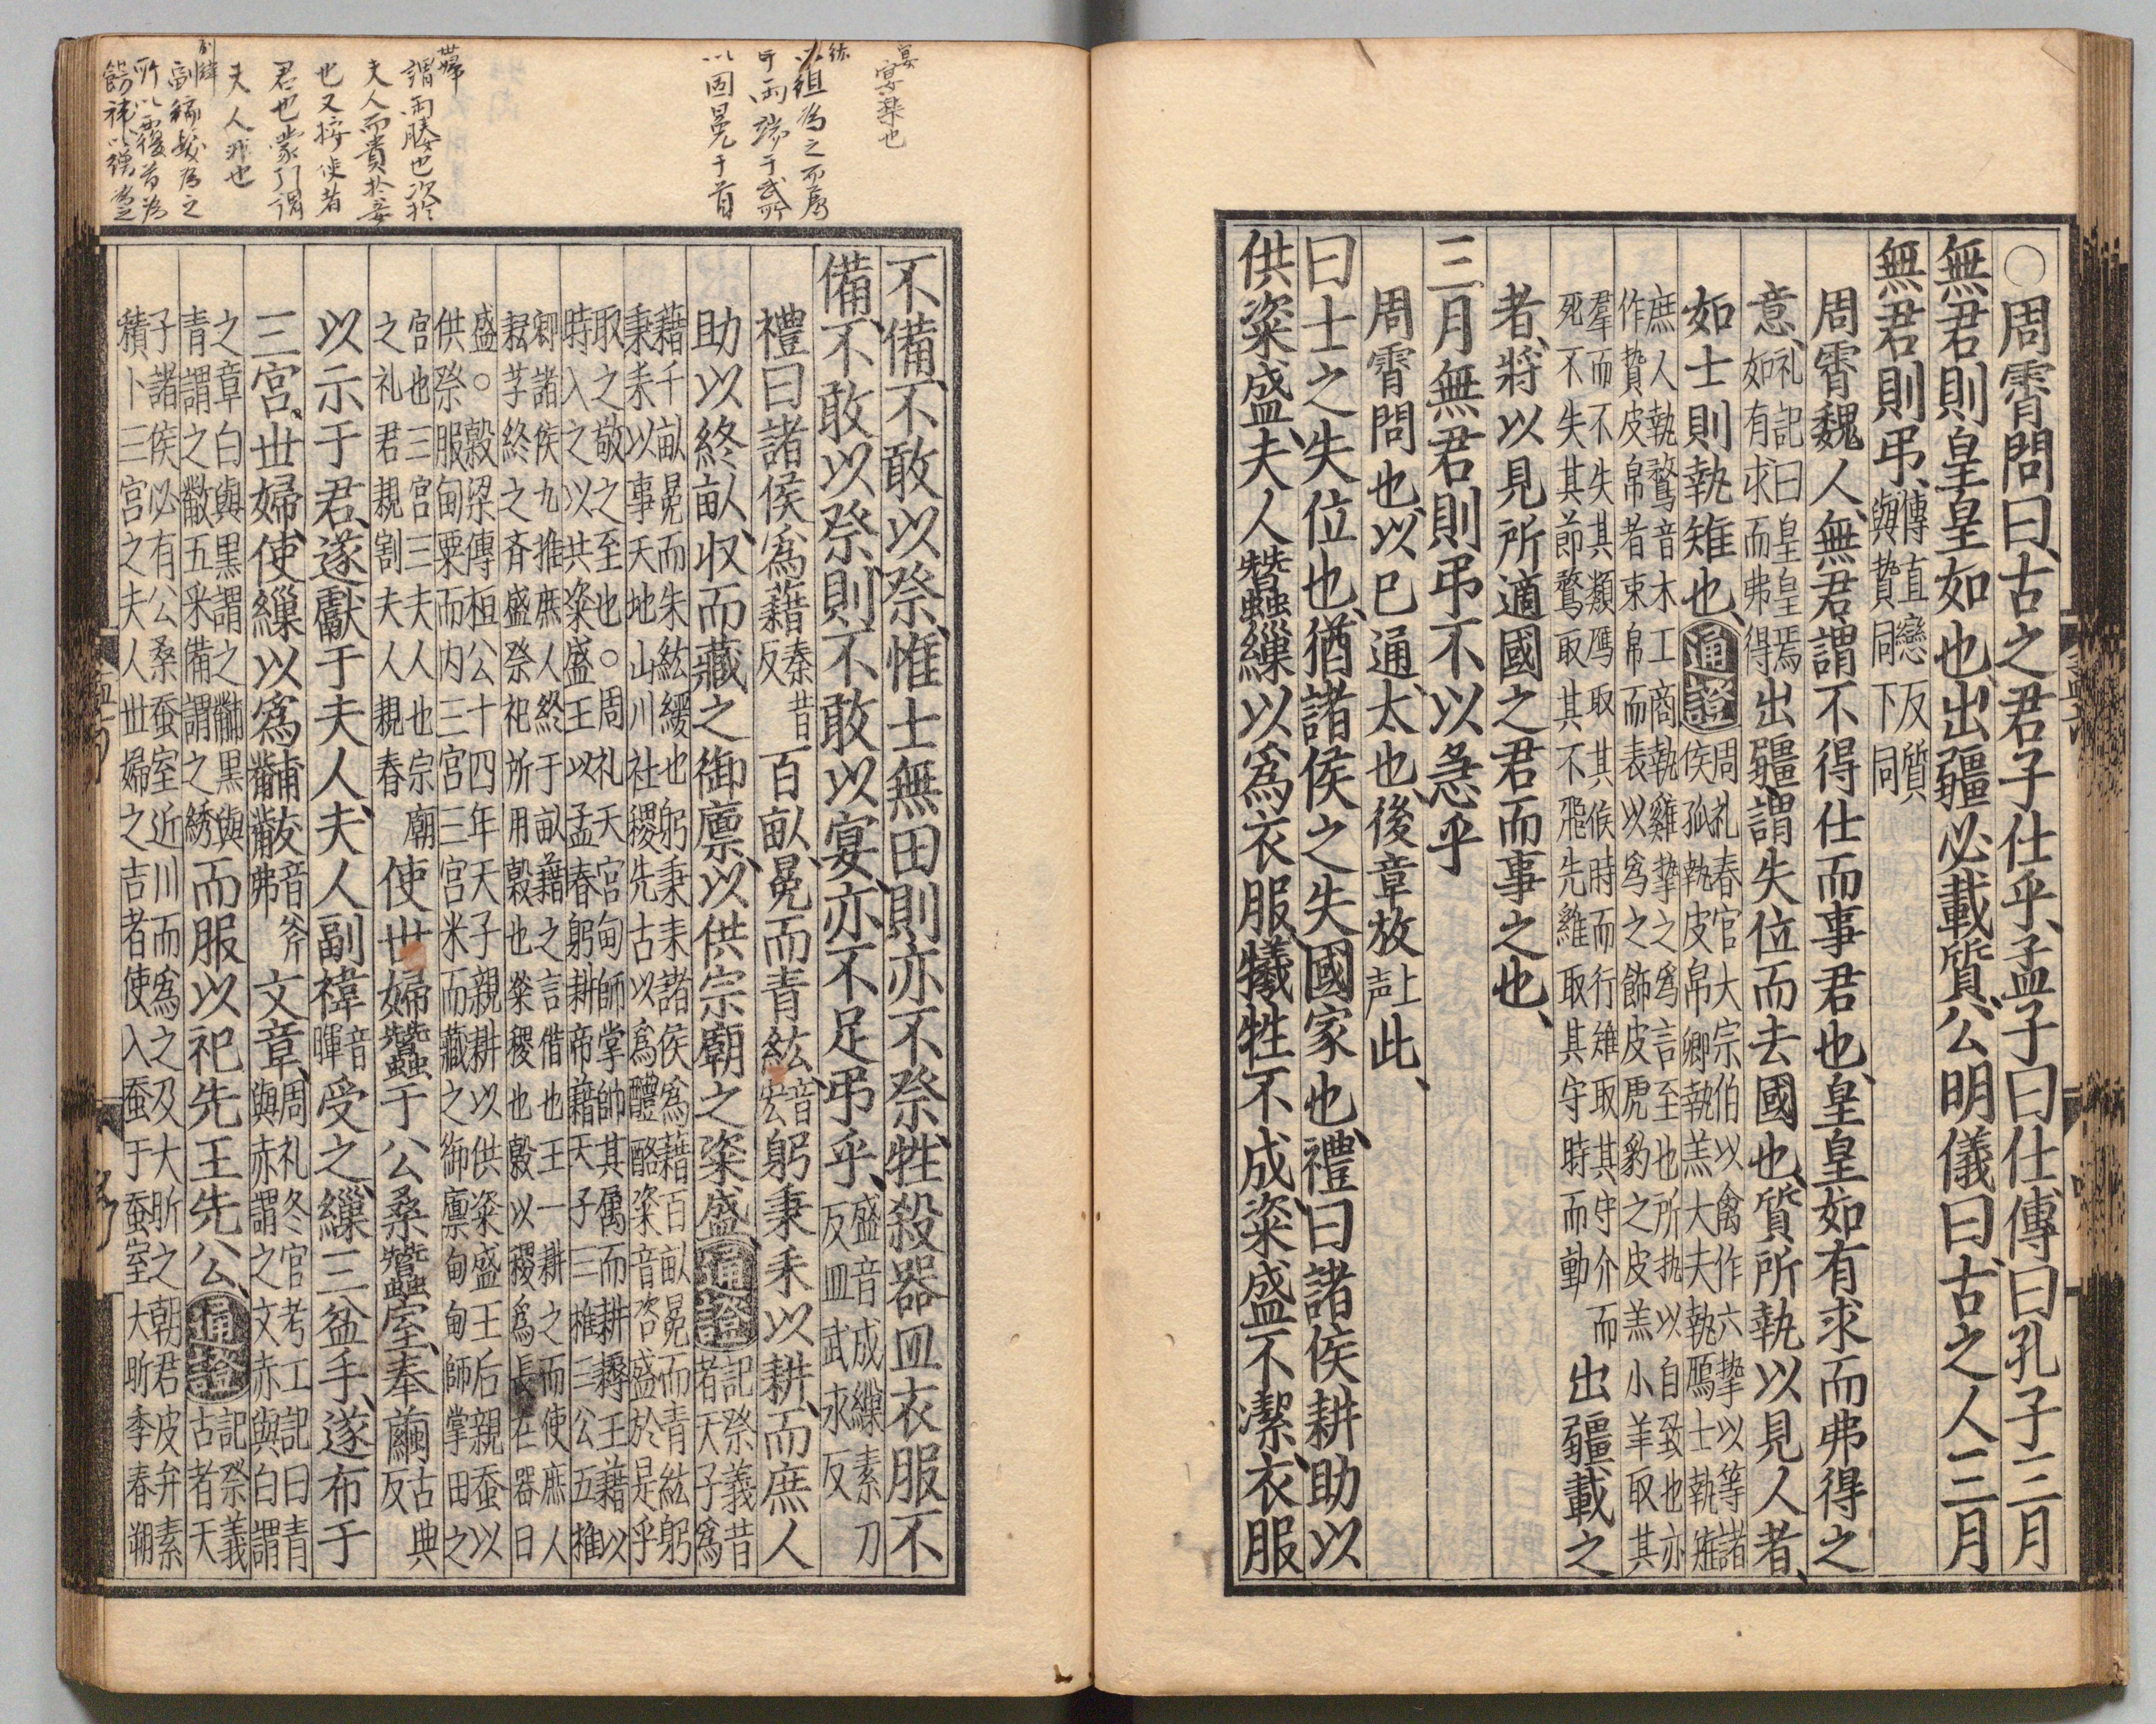 ○周霄問曰古之君子仕乎孟子曰仕傳曰孔子三月
無君則皇皇如也出疆必載質公明儀曰古之人三月
無君則弔傳直戀反質與贄同下同
周霄魏人無君謂不得仕而事君也皇皇如有求而弗得之
意礼記曰皇皇焉如有求而弗得出疆謂失位而去國也質所執以見人者
如士則執雉也通證周礼春官大宗伯以禽作六摯以等諸侯孤執皮帛卿執羔大夫執鴈士執雉
庶人執鶩音木工商執雞摯之爲言至也所执以自致也亦作贄皮帛者束帛而表以爲之飾皮虎豹之皮羔小羊取其
羣而不失其類鴈取其候時而行雉取其守介而死不失其節鶩取其不飛先雞取其守時而動出疆載之
者將以見所適國之君而事之也
三月無君則弔不以急乎
周霄問也以已通太也後章放上声此
曰士之失位也猶諸侯之失國家也禮曰諸侯耕助以
供粢盛夫人蠶繅以爲衣服犧牲不成粢盛不潔衣服
宴
宴樂也
紘
以組爲之而属
于兩端于武所
以固冕于首
世婦
謂兩媵也次於
夫人而貴於妾
也又按使者
君也蒙引謂
夫人非也
副褘
副編髪爲之
所以覆首爲
飾褘以繒爲之
不備不敢以祭惟士無田則亦不祭牲殺器皿衣服不
備不敢以祭則不敢以宴亦不足弔乎盛音成繅素刀反皿武永反
禮曰諸侯爲藉秦昔反百畝冕而青紘音宏躬秉耒以耕而庶人
助以終畝収而藏之御廩以供宗廟之粢盛通證記祭義昔者天子爲
藉千畝冕而朱紘緩也躬秉耒諸侯爲藉百畝冕而青紘躬秉耒以事天地山川社稷先古以爲醴酪粢音咨盛於是乎
取之敬之至也○周礼天宮甸師掌帥其属而耕耨王藉以時入之以共粢盛王以孟春躬耕帝藉天子三推三公五推
卿諸侯九推庶人終于畝藉之言借也王一耕之而使庶人耘芓終之斉盛祭祀所用穀也粢稷也穀以稷爲長在器曰
盛○穀梁傳桓公十四年天子親耕以供粢盛王后親蚕以供祭服甸粟而内三宮三宮米而藏之御廩甸甸師掌田之
宮也三宮三夫人也宗廟之礼君親割夫人親舂使世婦蠶于公桑蠶室奉繭古典反
以示于君遂獻于夫人夫人副褘音暉受之繅三盆手遂布于
三宮世婦使繅以爲黼黻音斧弗文章周礼冬官考工記曰青與赤謂之文赤與白謂
之章白與黒謂之黼黒與青謂之黻五采備謂之綉而服以祀先王先公通證記祭義古者天
子諸侯必有公桑蚕室近川而爲之及大昕之朝君皮弁素積卜三宮之夫人世婦之吉者使入蚕于蚕室大昕季春朔